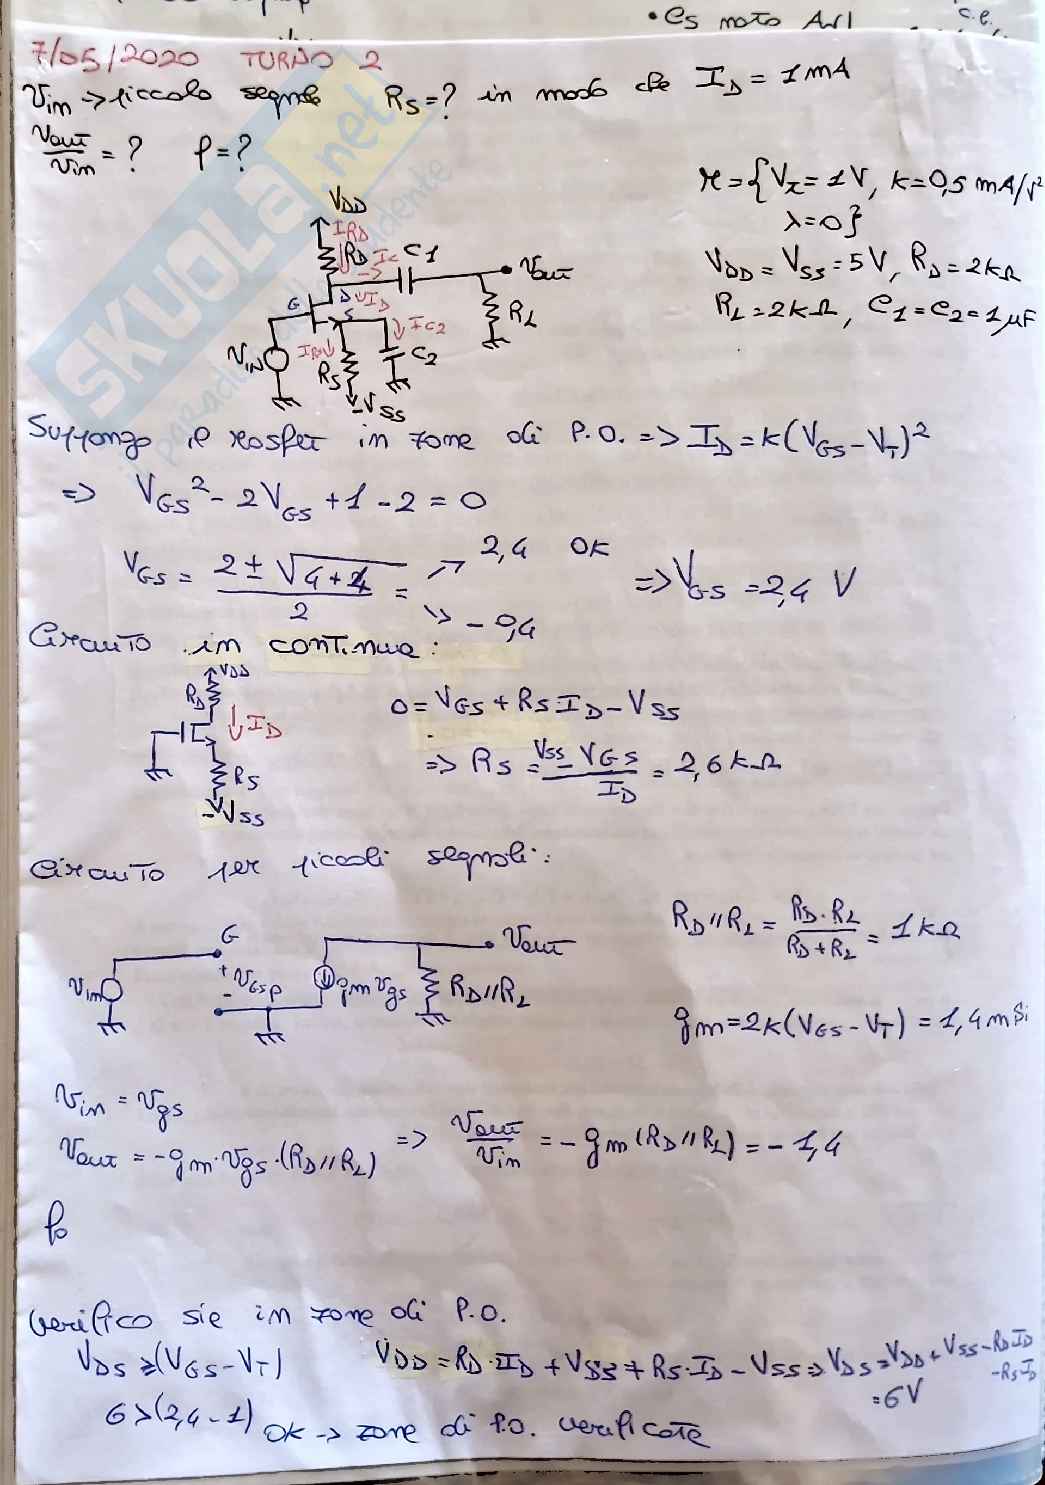 • Es noto AVI c.e.
7/05/2020 TURNO 2
Vin → piccolo segnale RS=? in modo che ID = 1mA
Vout/Vin = ? P=?
M={VT=1V, k=0,5 mA/V²
λ=0}
VDD = VSS = 5V, RD = 2kΩ
RL=2kΩ, C1=C2=1μF
VDD
IRD
RD Ic C1 Vout
G D ID
S RL
IC2
VIN IRS RS C2
-VSS
Suppongo il mosfet in zone di P.O. => ID = k(VGS-VT)²
=> VGS² - 2VGS + 1 - 2 = 0
VGS = 2 ± √4+4 / 2 = 2,4 OK => VGS = 2,4 V
- 0,4
Circuito in continua:
VDD
RD
ID
RS
-VSS
0 = VGS + RS ID - VSS
=> RS = VSS - VGS / ID = 2,6 kΩ
Circuito per piccoli segnali:
G Vout
Vin + - gm vgs RD//RL
RD//RL = RD·RL / RD+RL = 1kΩ
gm=2k(VGS-VT) = 1,4 m Si
Vin = Vgs
Vout = -gm·Vgs·(RD//RL) => Vout/Vin = -gm(RD//RL) = -1,4
Verifico sie in zone di P.O.
VDS ≥ (VGS-VT) VDD = RD·ID + VDS + RS·ID - VSS => VDS = VDD + VSS - RD ID
- RS ID
= 6V
6 > (2,4 - 1) OK → zone di P.O. verificate
SKUOLA.net